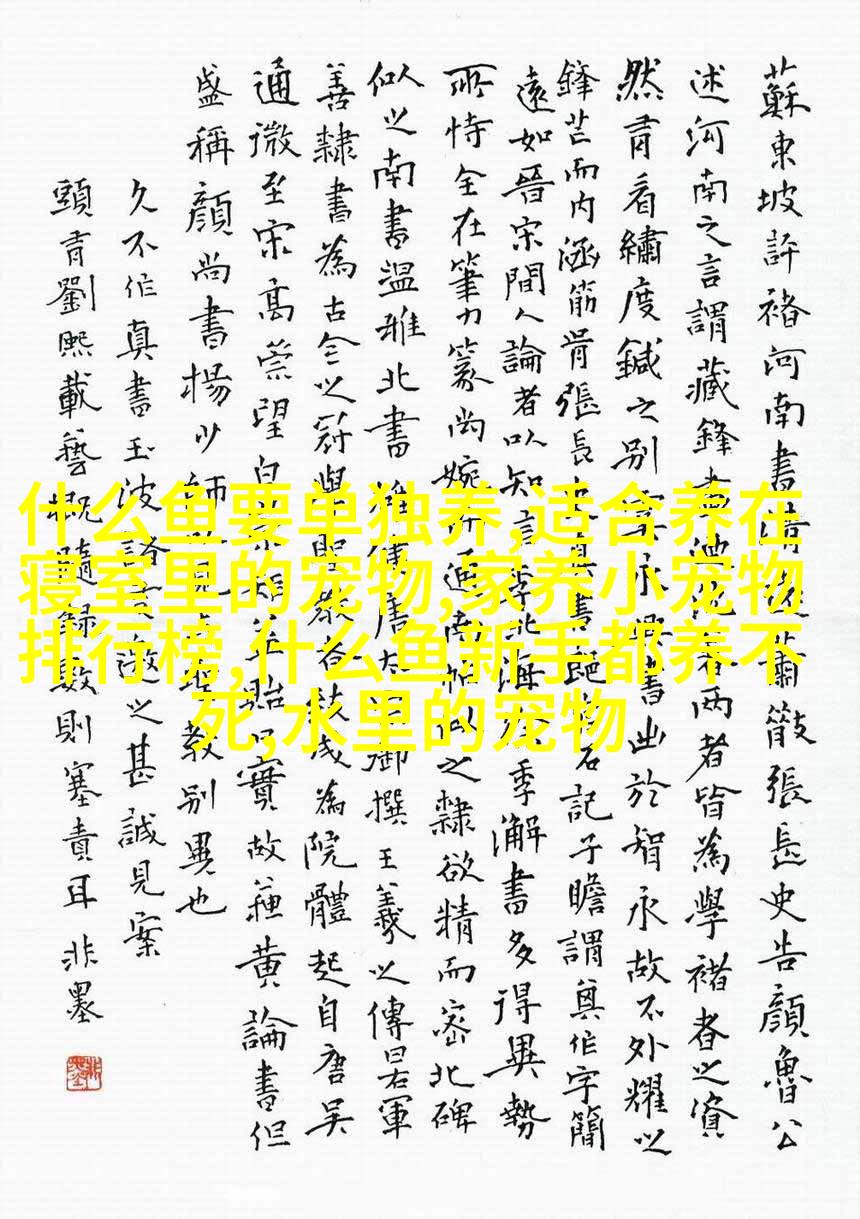 蘇東坡評褚河南書清遠蕭散張長史告顏魯公
述河南之言謂藏鋒畫兩者皆為學褚者之資
然青看繡度鍼之別永興書出於智永故不外耀以
鋒芒而內涵筋骨張長史真書石記子瞻謂其作字簡
遠如晉宋間人論者以知言李北海季澥書多得異勢
所恃全在筆力篆尚婉而通南帖似之隸欲精而密北碑
似之南書溫雅北書雄健唐太御撰王羲之傳晷軍
善隸書為古今之冠學為院體起自唐吳
通微至宋高崇望白實故蘇黃論書但
盛稱顏尚書楊少師教別異也
久不作真書玉波諸之甚誠見案
頭有劉熙載藝概隨錄數則塞責耳非墨
什么鱼要单独养,适合养在
寝室里的宠物,家养小宠物
排行榜,什么鱼新手都养不
死,水里的宠物